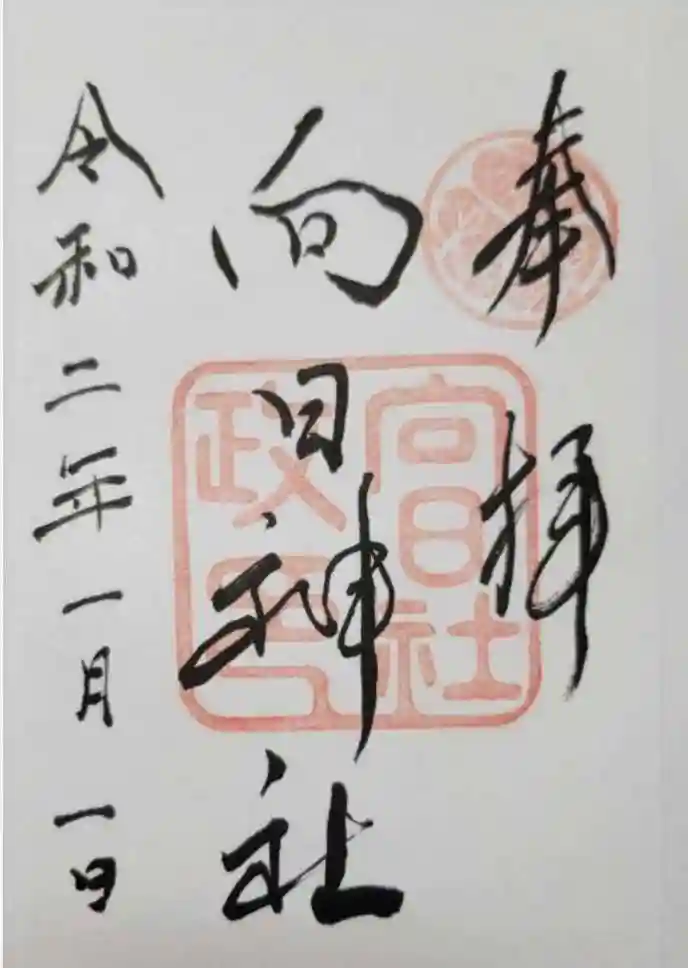 奉拝
向日神社
向日社
政所
令和二年一月一日